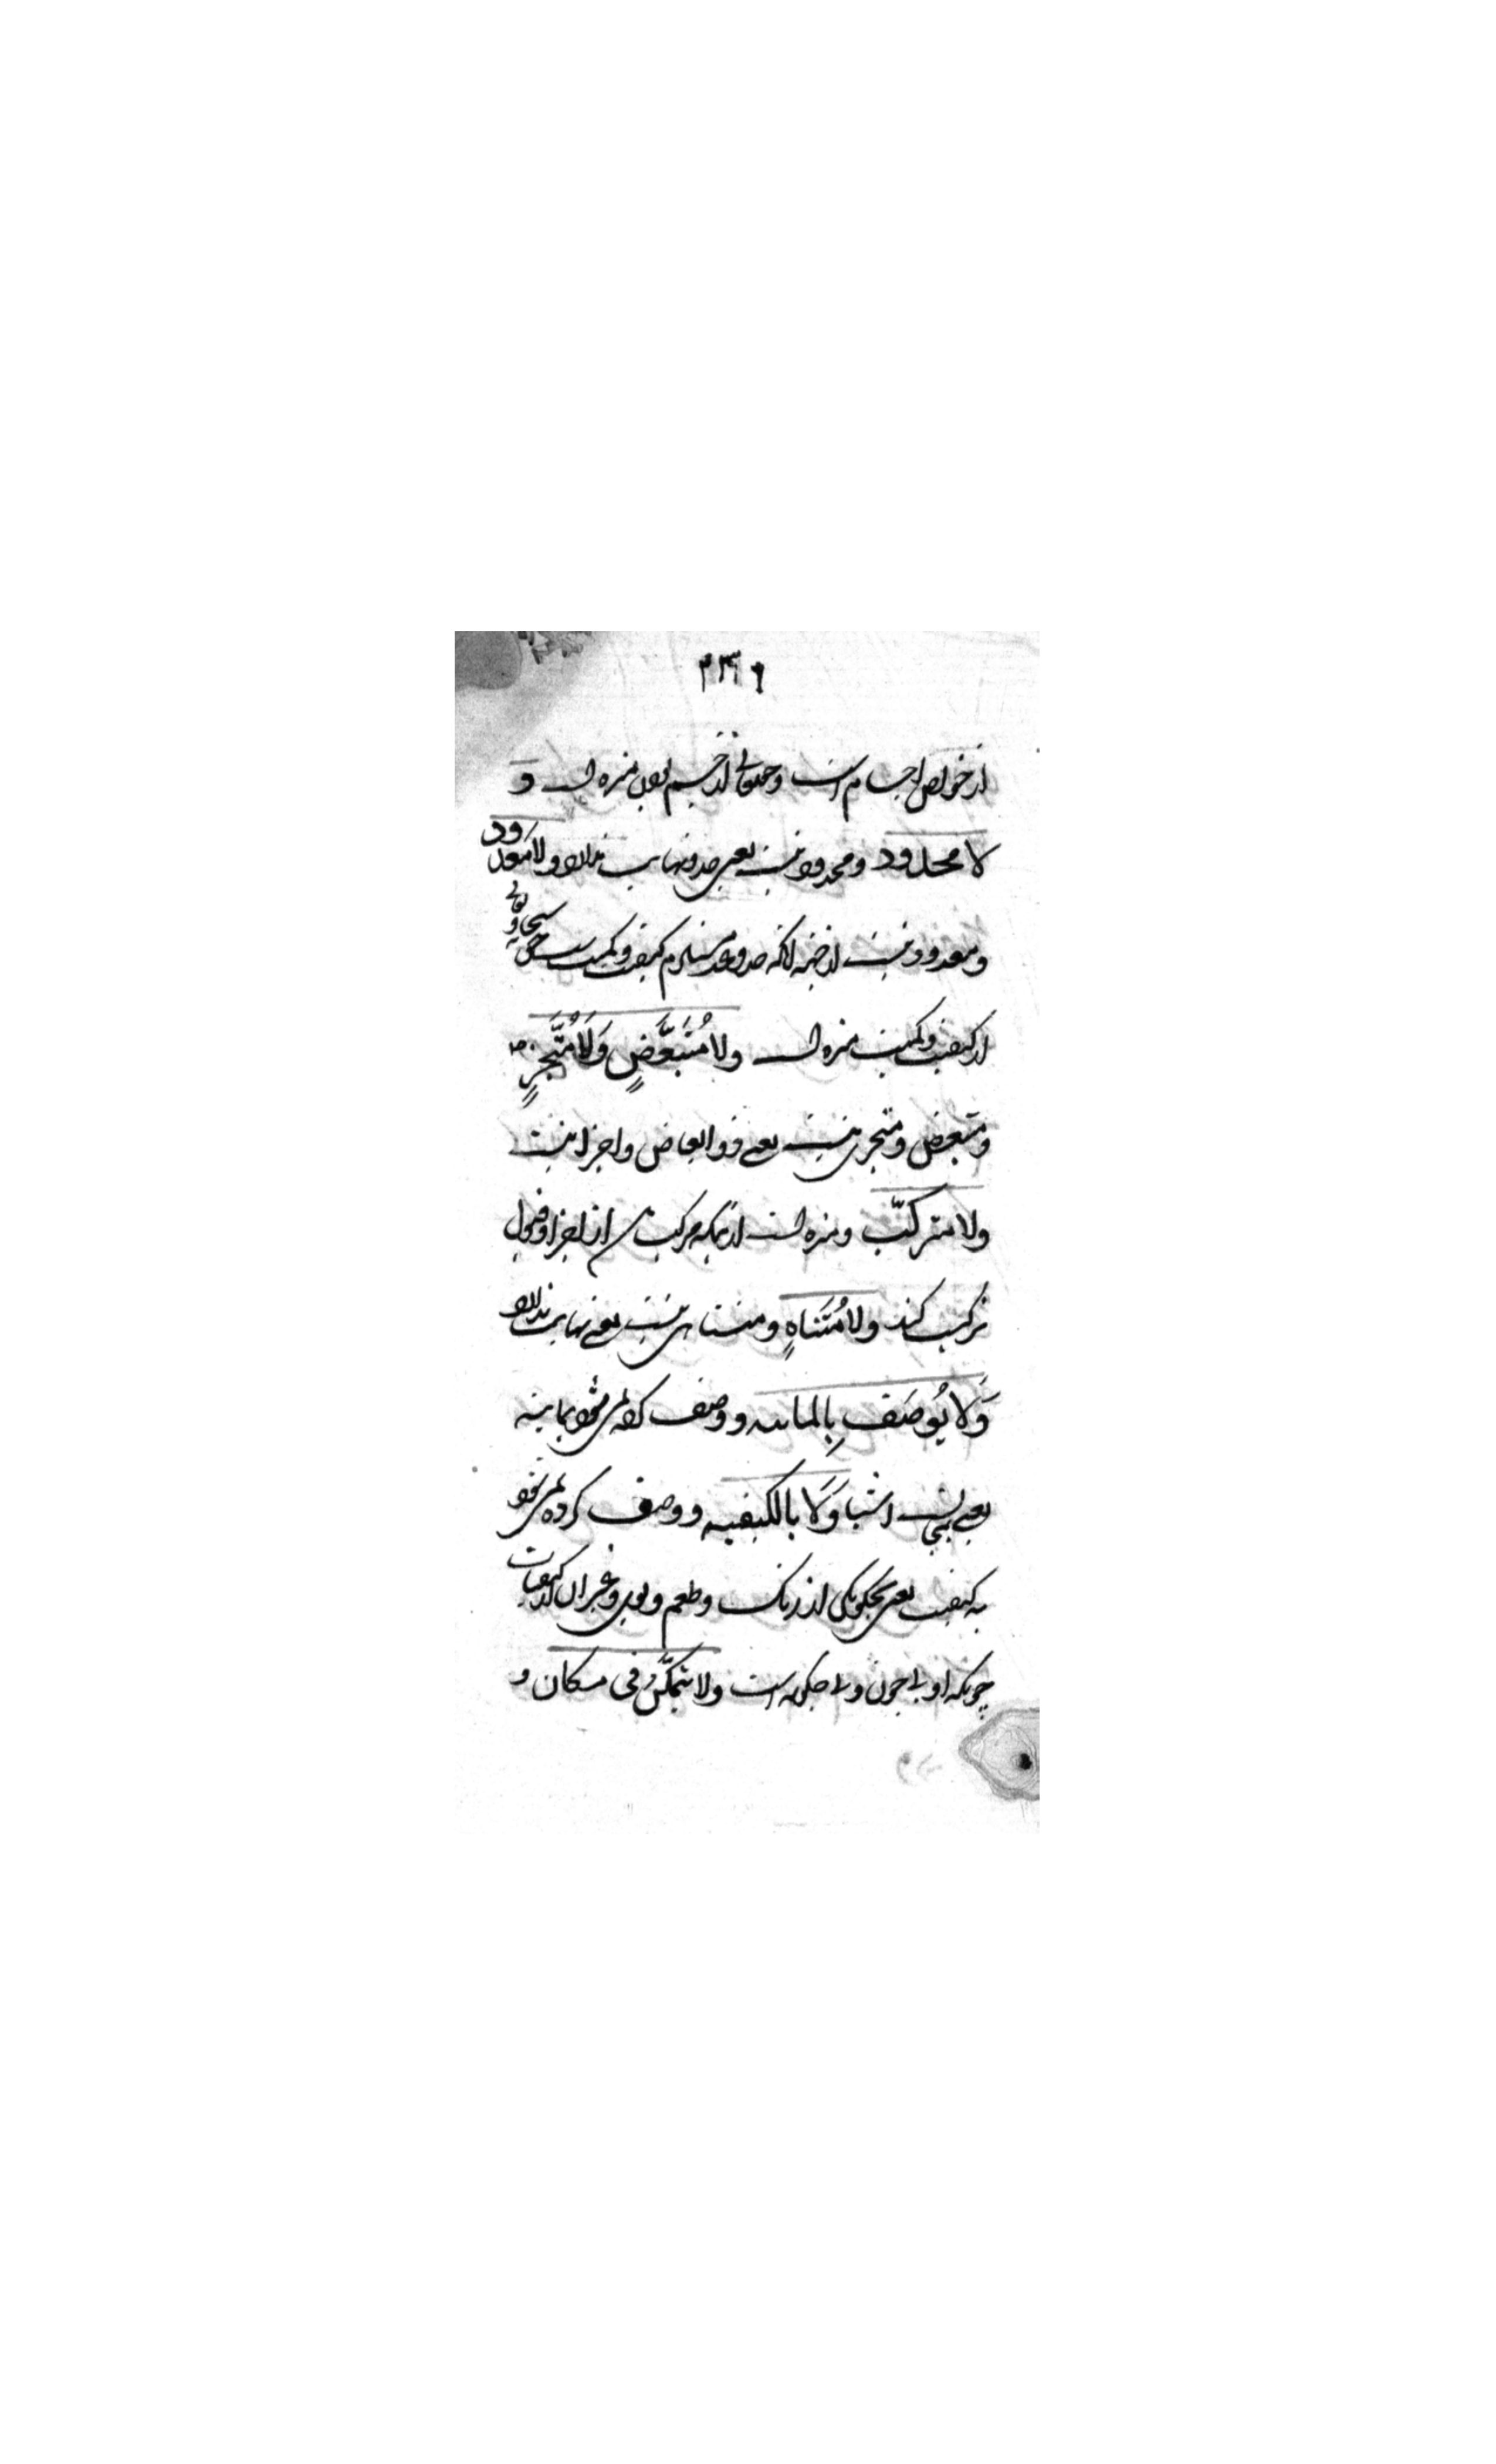 ۲۳۹
از خواص اجسام است و حقتعالی از جسم بودن منزه است و
لا محدود و محدود نیست یعنی حد و نهایت ندارد و لا معدود
و معدود نیست از جهة آنکه حد و عد مستلزم کیفیت و کمیت است حق سبحانه و تعالی
از کیفیت و کمیت منزه است ولا مُتَبَعَّضٍ وَلَا مُتَجَرٍّ
و متبعض و متجزی نیست یعنی ذو ابعاض و اجزا نیست
ولا مترکّب و منزه است از آنکه مرکب از اجزا و قبول
ترکیب کند ولا مُتَناهٍ و متناهی نیست یعنی نهایت ندارد
وَلَا یُوصَف بِالماهیه و وصف کرده نمی شود بماهیه
یعنی اشیا وَلَا بالکیفیه و وصف کرده نمی شود
به کیفیت یعنی بچگونگی از رنگ و طعم و بوی و غیر آن از کیفیات
چونکه او بی چون و بی چگونه است ولا یتمکّن فی مکان و